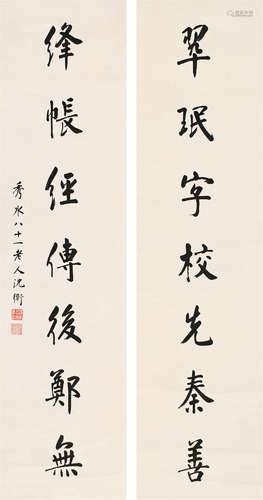 翠珉字校先秦善
絳帳經傳後鄭無
秀水八十一老人沈衛